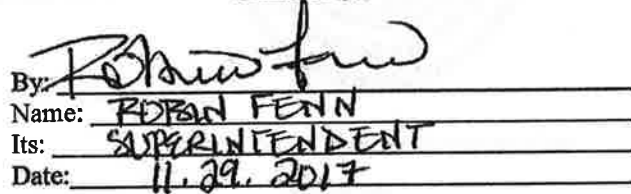 By: Robin Fenn
Name: ROBIN FENN
Its: SUPERINTENDENT
Date: 11.29.2017